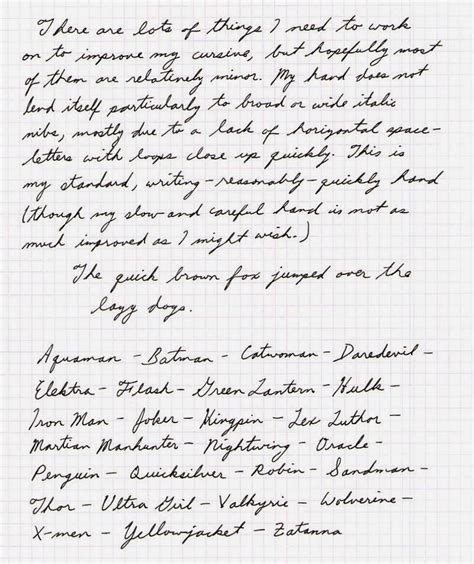 There are lots of things I need to work
on to improve my cursive, but hopefully most
of them are relatively minor. My hand does not
lend itself particularly to broad or wide italic
nibs, mostly due to a lack of horizontal space-
letters with loops close up quickly. This is
my standard, writing-reasonably-quickly hand
(though my slow-and careful hand is not as
much improved as I might wish.)
The quick brown fox jumped over the
lazy dogs.
Aquaman - Batman - Catwoman - Daredevil -
Elektra - Flash - Green Lantern - Hulk -
Iron Man - Joker - Kingpin - Lex Luthor -
Martian Manhunter - Nightwing - Oracle -
Penguin - Quicksilver - Robin - Sandman -
Thor - Ultra Girl - Valkyrie - Wolverine -
X-men - Yellowjacket - Zatanna